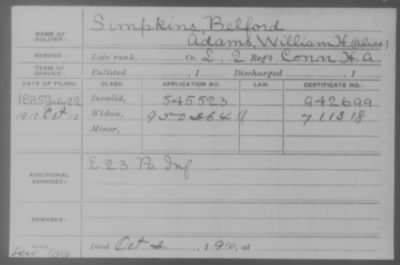 NAME OF SOLDIER: Simpkins, Belford
Adams, William H. (Alias)
SERVICE: Late rank, Co. L, 2 Reg't Conn H.A.
TERM OF SERVICE: Enlisted , 1 Discharged , 1
DATE OF FILING. CLASS. APPLICATION NO. LAW. CERTIFICATE NO.
1885 July 22 Invalid, 545523 942699
191 Oct 12 Widow, 950264 711318
Minor,
ADDITIONAL SERVICES: E 23 Pa Inf
REMARKS:
Died Oct , 190